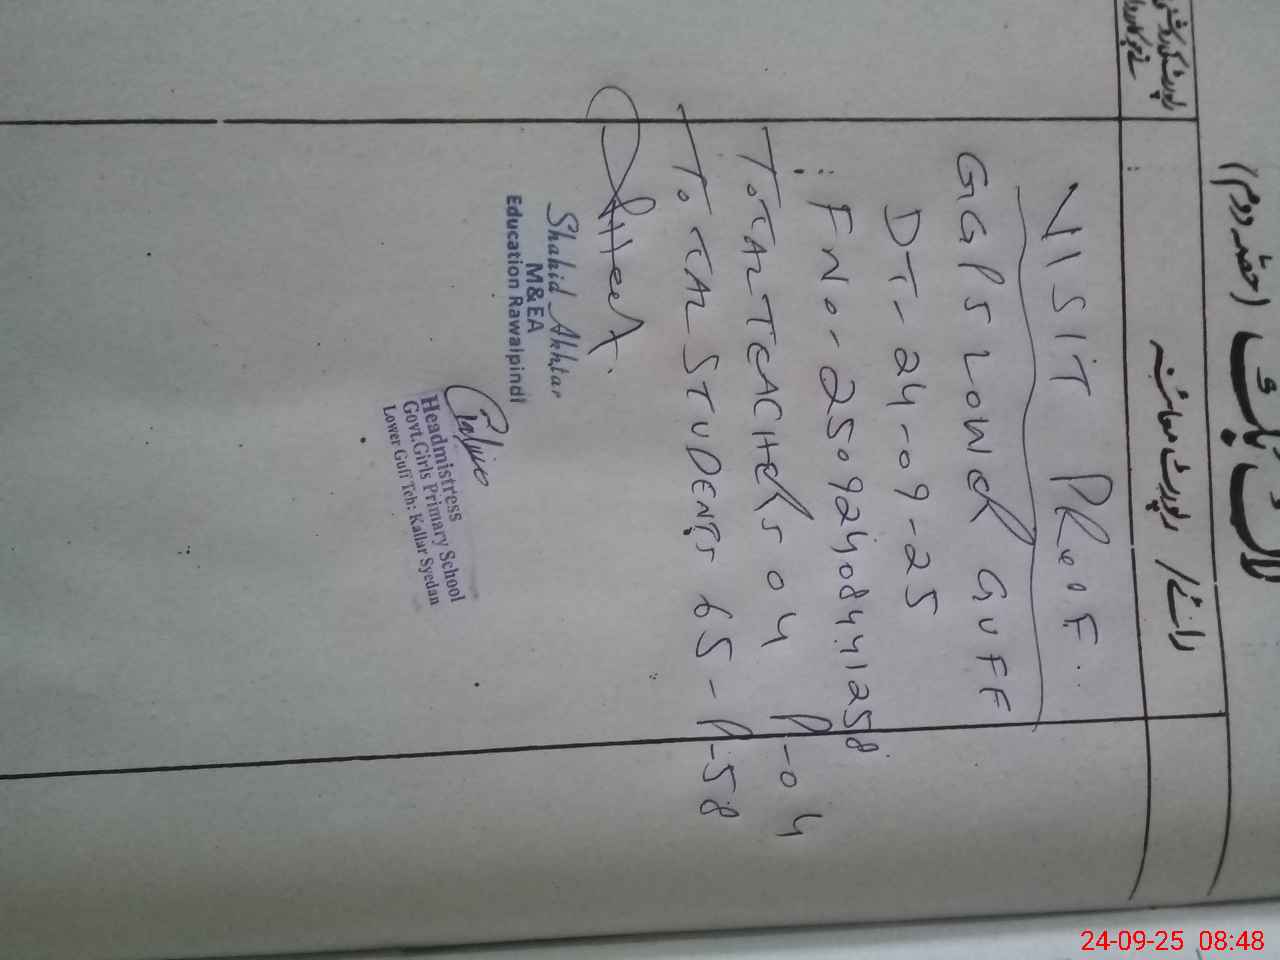 (حصہ دوم)
رائے / رپورٹ معائنہ
VISIT PRooF.
GGPS LOWER GUFF
DT- 24-09-25
FNo- 25092408441258
ToTAL TEACHERS 04 P-04
ToTAL STUDENTS 65 - P-58
Shahid Akhtar
M&EA
Education Rawalpindi
Headmistress
Govt.Girls Primary School
Lower Guff Teh: Kallar Syedan
24-09-25 08:48